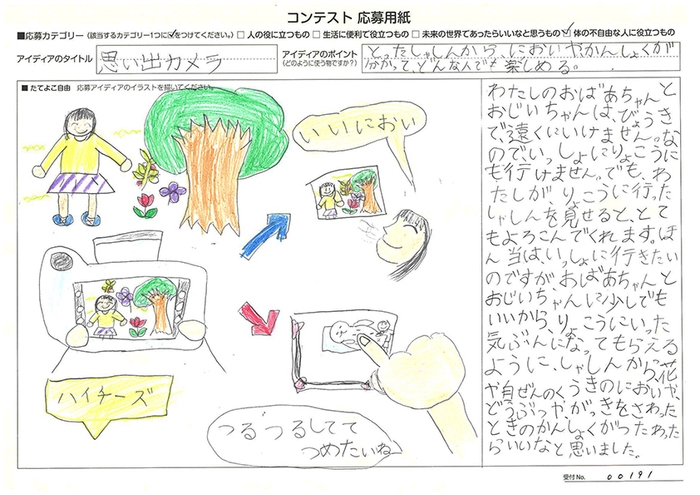 コンテスト 応募用紙
■応募カテゴリー（該当するカテゴリー1つに✓をつけてください。）□ 人の役に立つもの □ 生活に便利で役立つもの □ 未来の世界であったらいいなと思うもの ☑ 体の不自由な人に役立つもの
アイディアのタイトル
思い出カメラ
アイディアのポイント
（どのように使う物ですか？）
とったしゃしんから、においやかんしょくが
分かって、どんな人でも楽しめる。
■ たてよこ自由 応募アイディアのイラストを描いてください。
いいにおい
ハイチーズ
つるつるしてて
つめたいね
わたしのおばあちゃんと
おじいちゃんは、びょうき
で遠くにいけません。な
のでいっしょにりょこうに
も行けません。でも、わ
たしが、りょこうに行った
しゃしんを見せると、とて
もよろこんでくれます。ほ
ん当はいっしょに行きたい
のですが、おばあちゃんと
おじいちゃんに少しでも
いいから、りょこうにいった
気ぶんになってもらえる
ように、しゃしんから花
や自ぜんのくうきのにおいや、
どうぶつやがっきをさわった
ときのかんしょくがつたわった
らいいなと思いました。
受付No. 00191